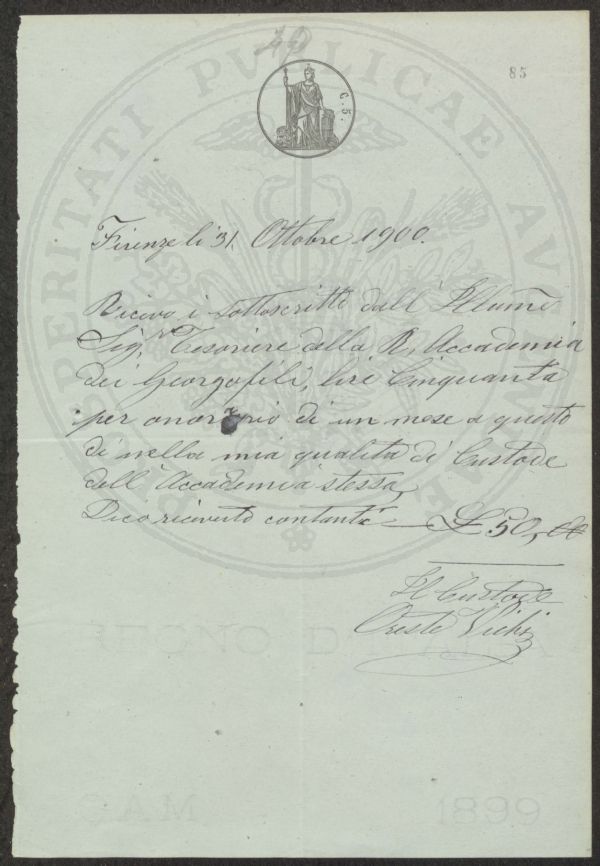 40
85
C. 5.
PROSPERITATI PVBLICAE AVGENDAE
Firenze li 31. Ottobre 1900.
Ricevo i sottoscritto dall' Illumo
Sigr. Tesoriere della R. Accademia
dei Georgofili, lire Cinquanta
per onorario di un mese a questo
dì nella mia qualità di Custode
dell' Accademia stessa,
Dico ricevuto contanti £ 50,
Il Custode
Oreste Vichi
REGNO D'ITALIA
1899